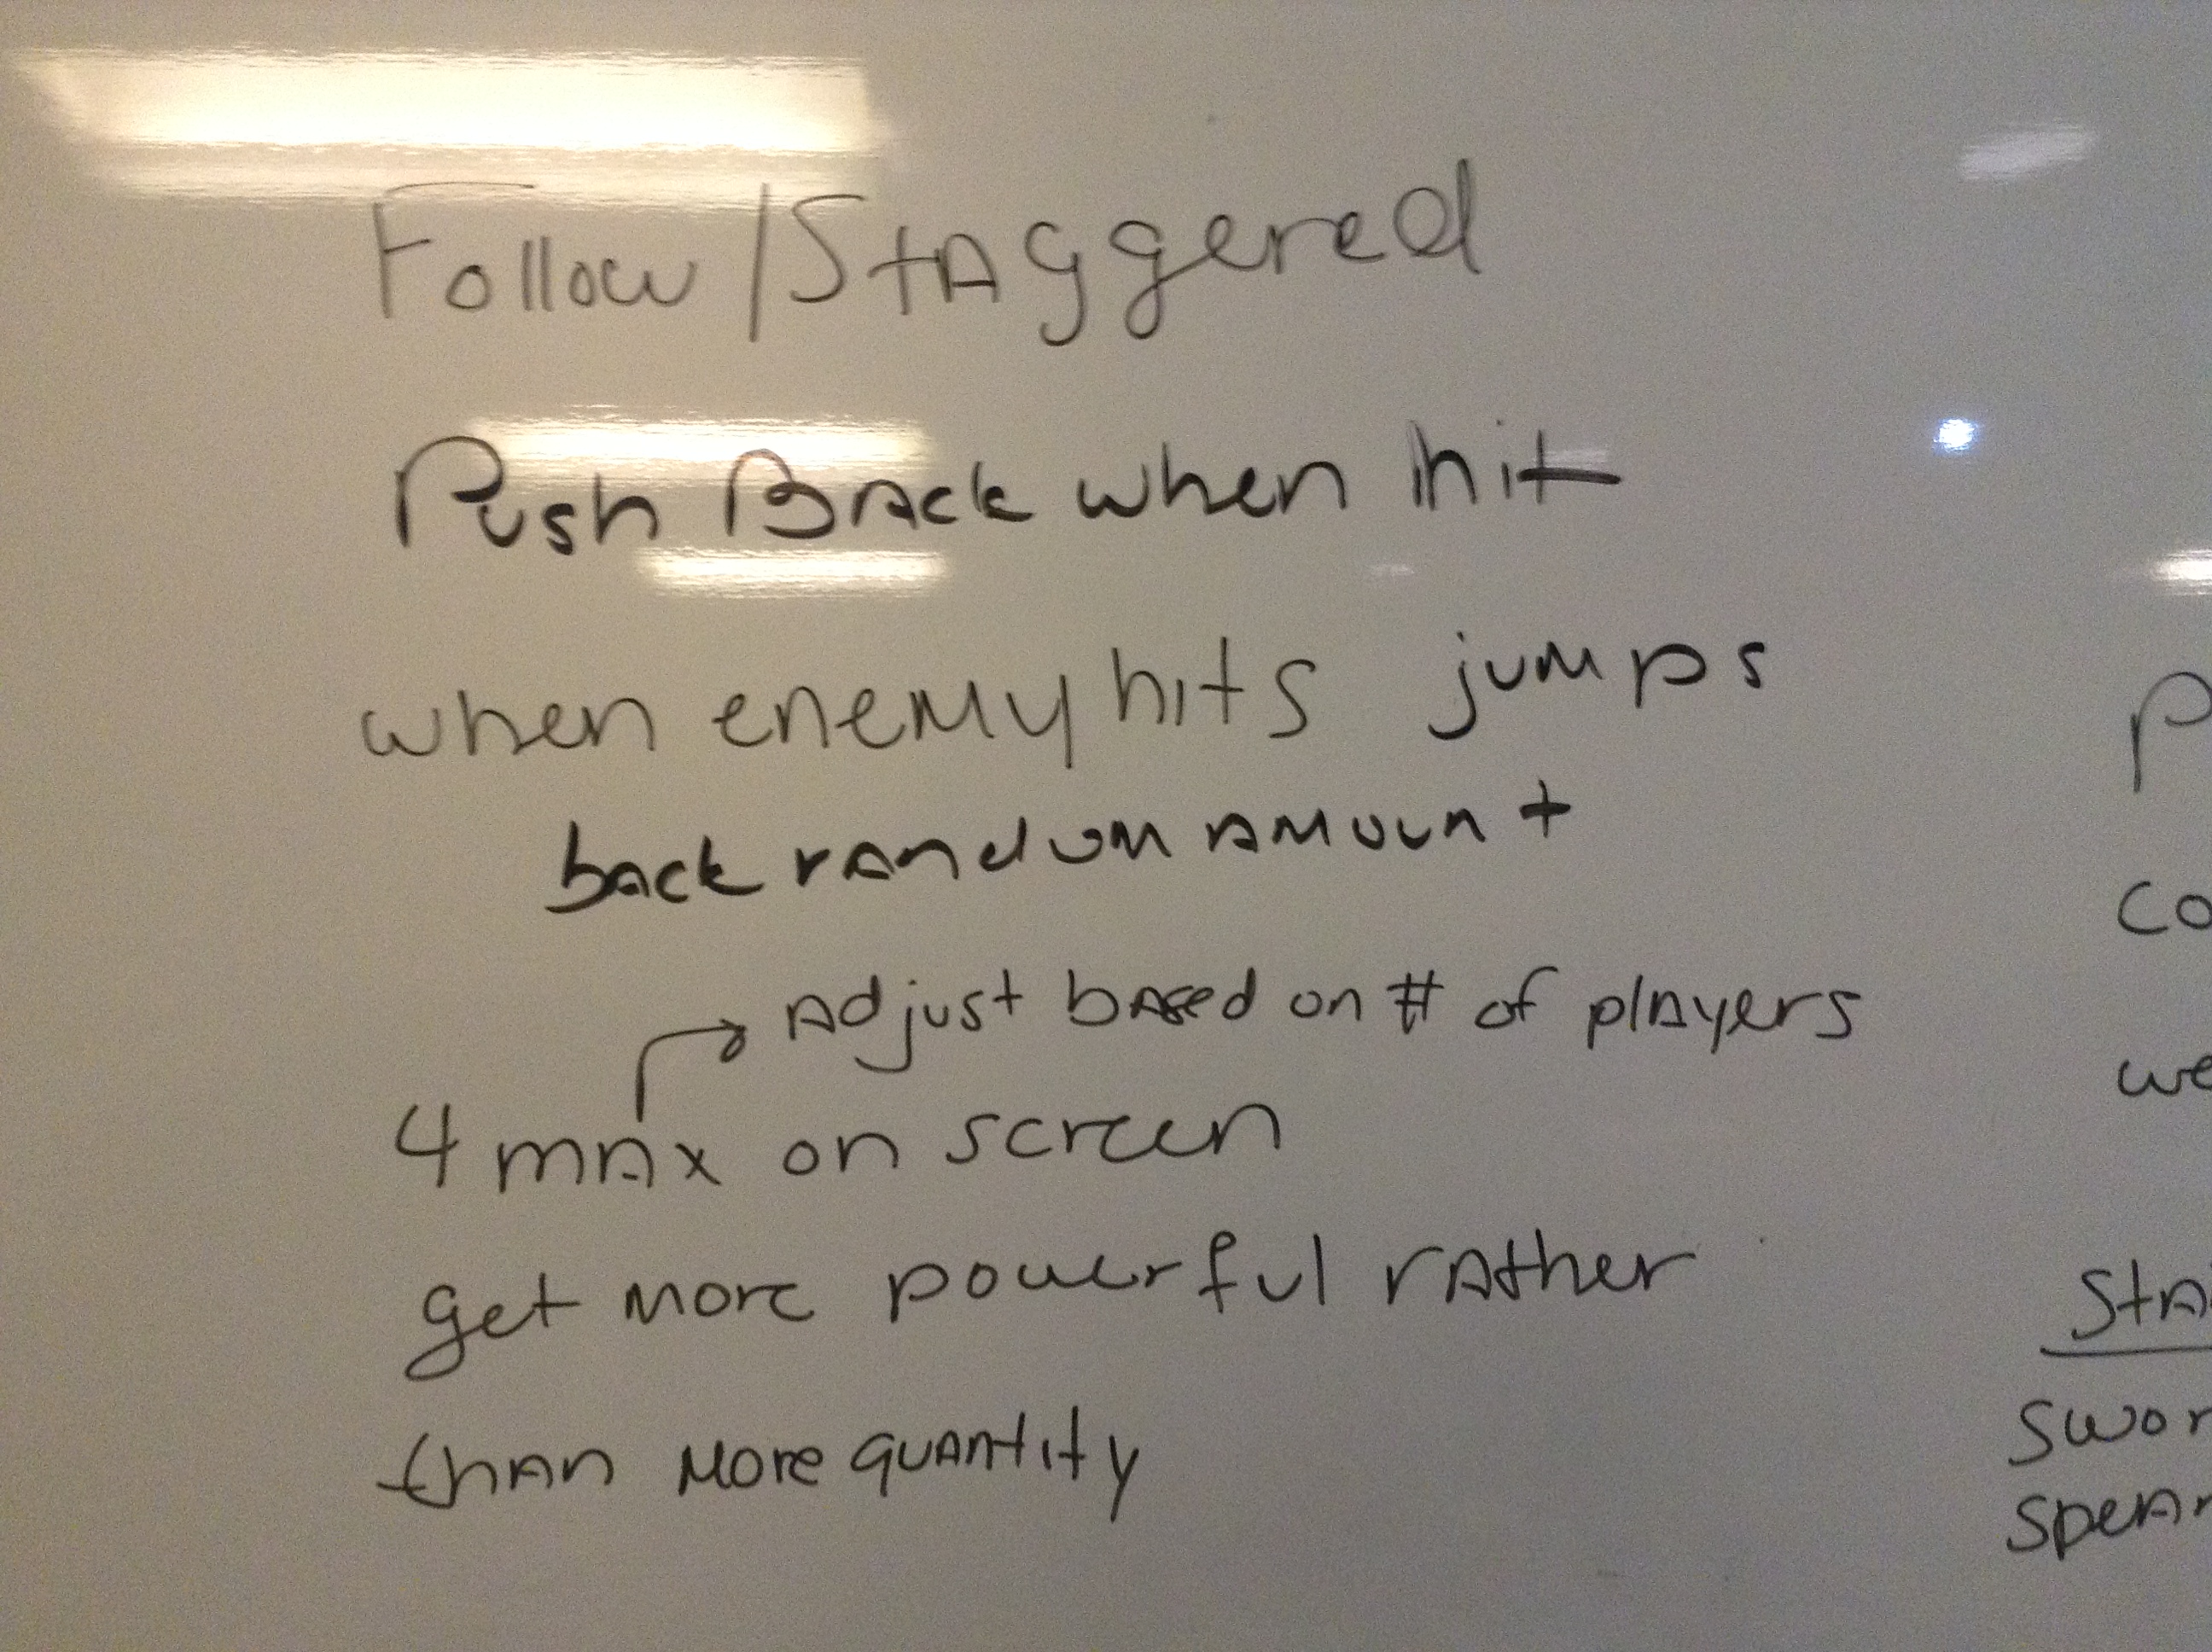 Follow/Staggered
Push Back when hit
when enemy hits jumps
back random amount
adjust based on # of players
4 max on screen
get more powerful rather
than more quantity
P
co
we
Sta
swor
spear